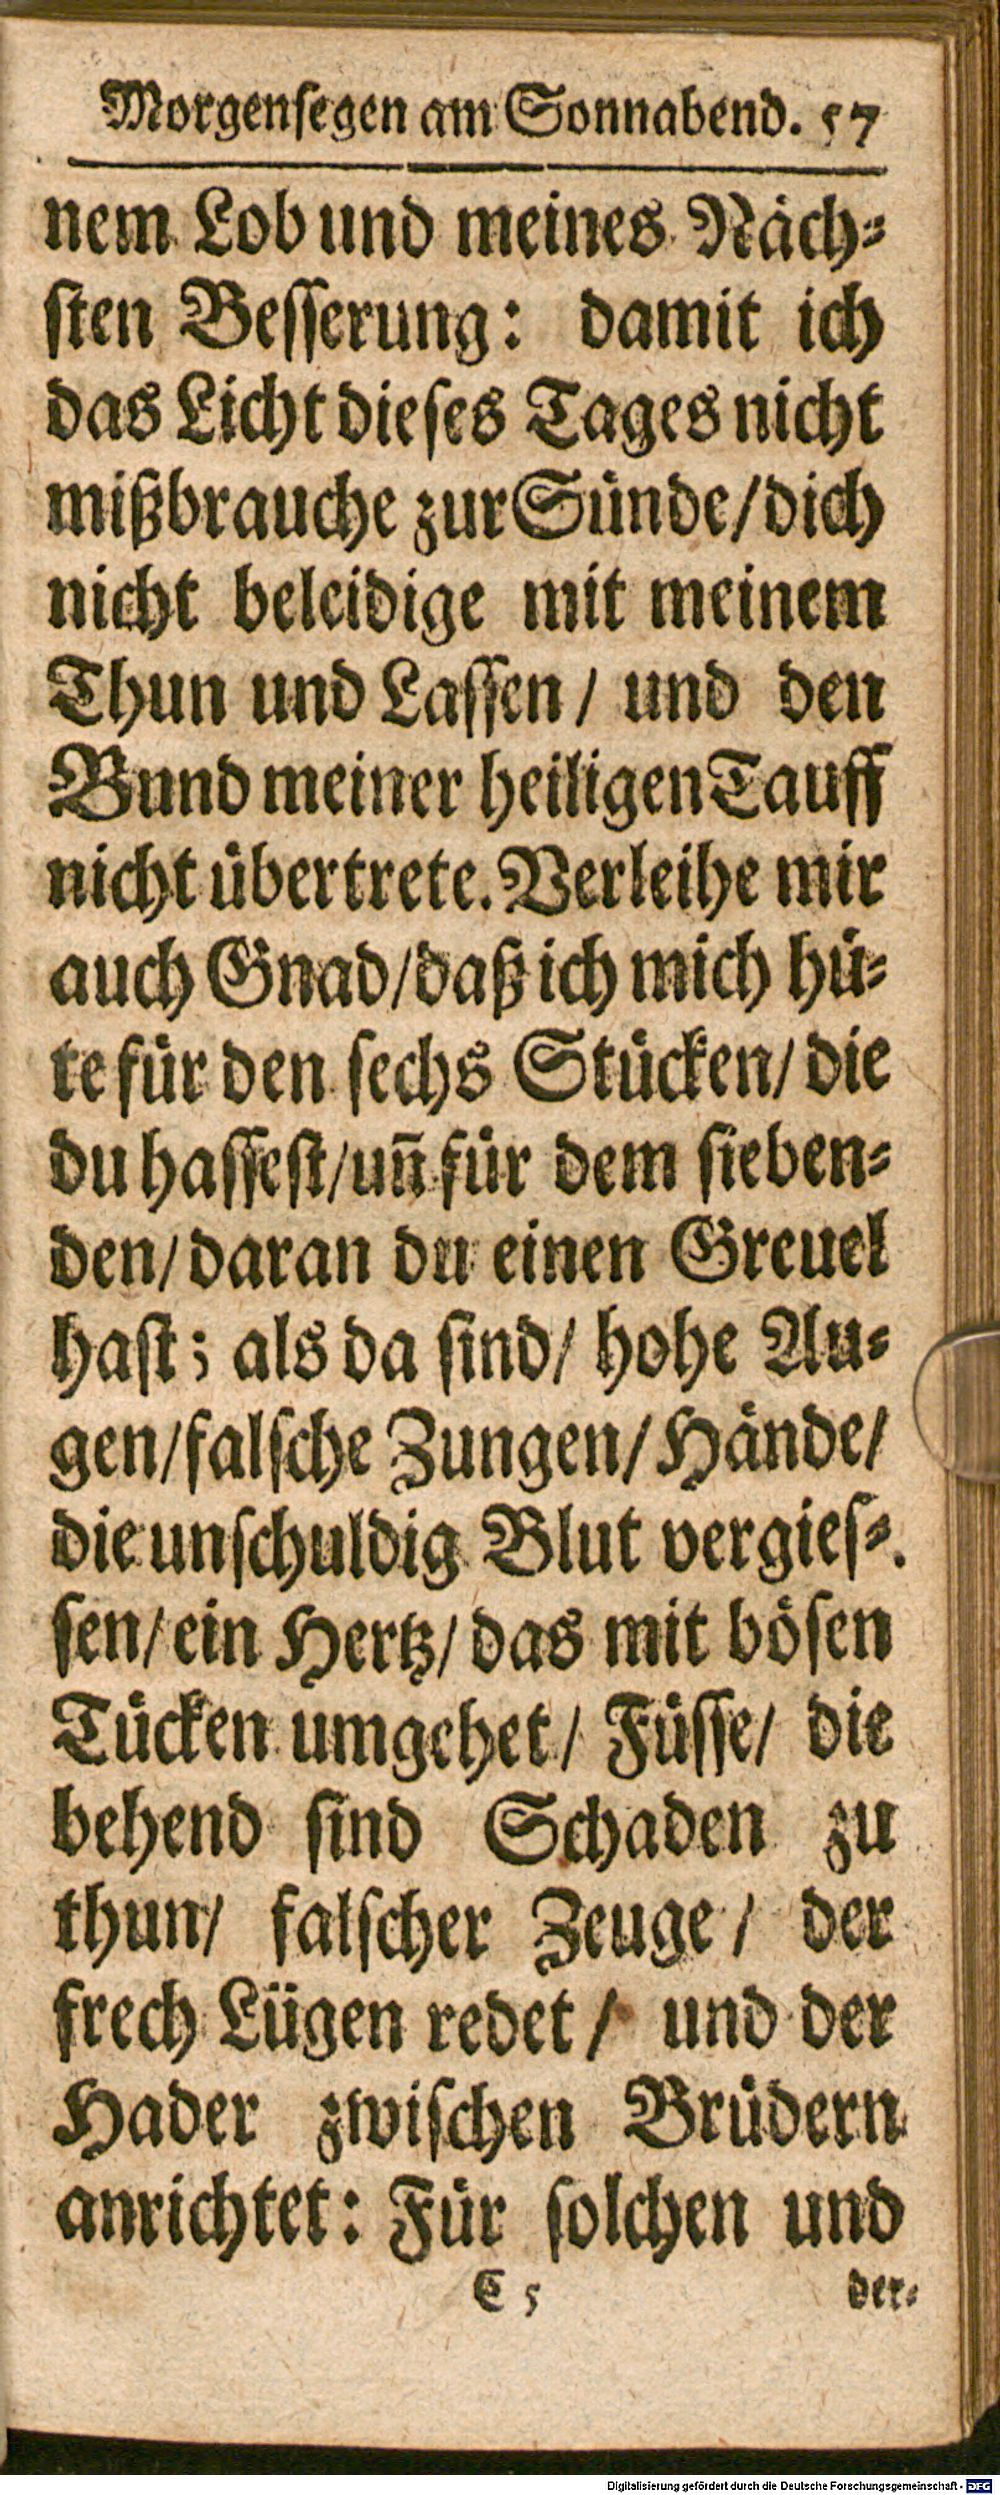 Morgensegen am Sonnabend. 57
nem Lob und meines Näch⸗
sten Besserung: damit ich
das Licht dieses Tages nicht
mißbrauche zur Sünde/dich
nicht beleidige mit meinem
Thun und Lassen/ und den
Bund meiner heiligen Tauff
nicht übertrete. Verleihe mir
auch Gnad/daß ich mich hü⸗
te für den sechs Stücken/ die
du hassest/uñ für dem sieben⸗
den/ daran du einen Greuel
hast; als da sind/ hohe Au⸗
gen/falsche Zungen/ Hände/
die unschuldig Blut vergies⸗
sen/ ein Hertz/ das mit bösen
Tücken umgehet/ Füsse/ die
behend sind Schaden zu
thun/ falscher Zeuge/ der
frech Lügen redet/ und der
Hader zwischen Brüdern
anrichtet: Für solchen und
C 5 der⸗
Digitalisierung gefördert durch die Deutsche Forschungsgemeinschaft - DFG